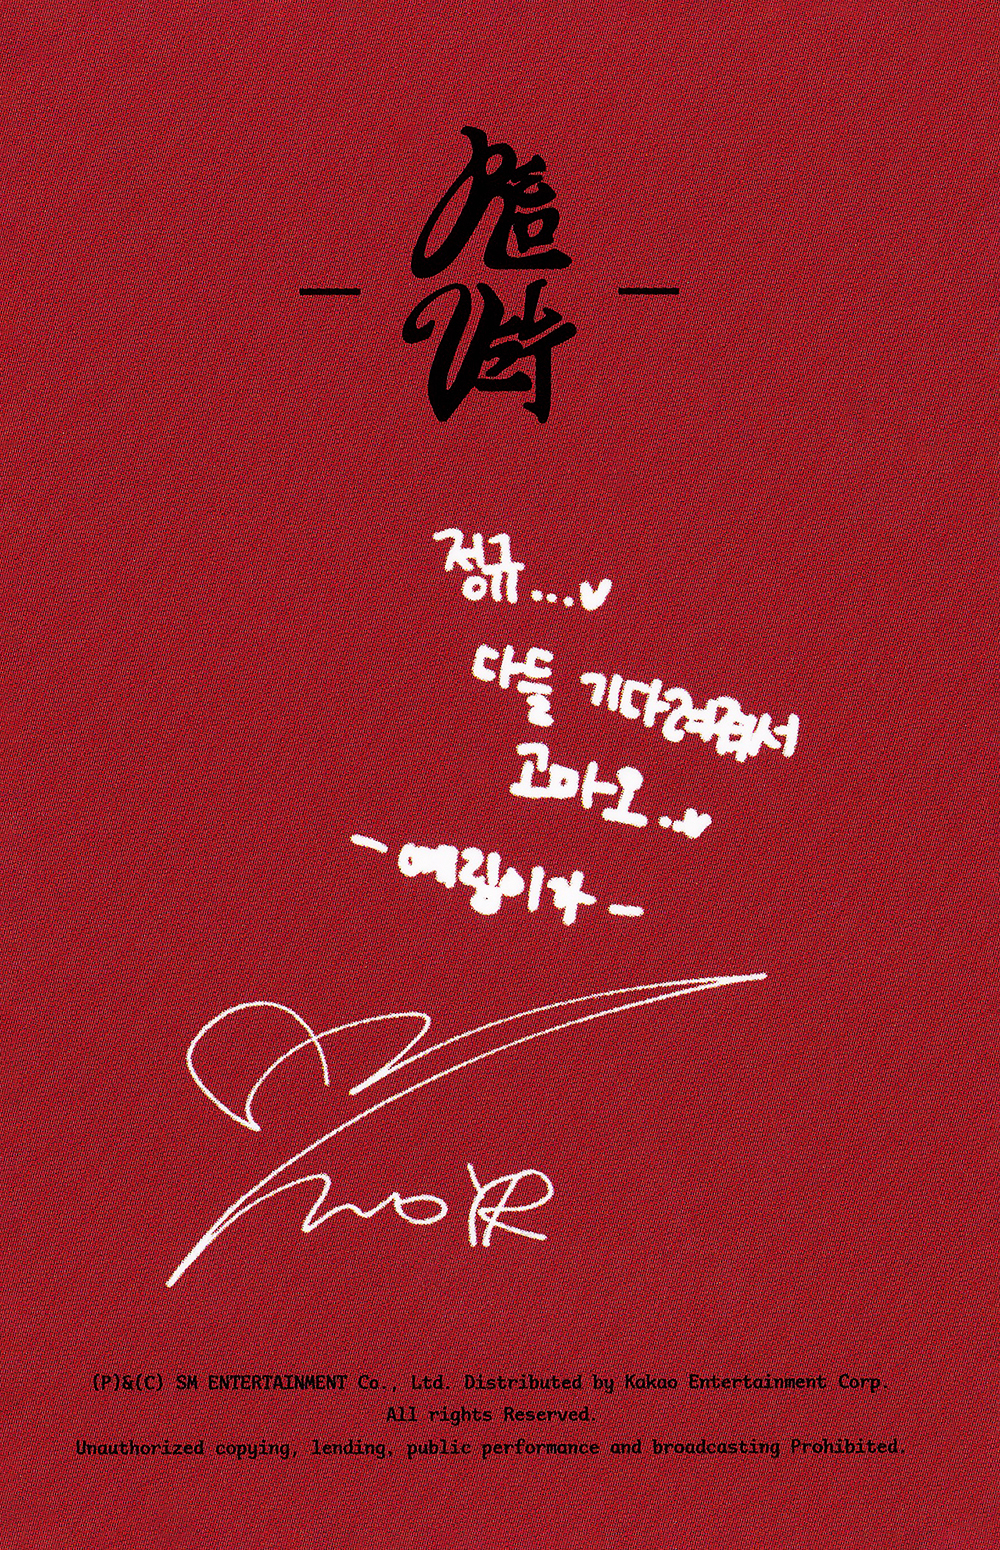 정규...♥
다들 기다려줘서
고마오..♥
- 예림이가 -
YR
(P)&(C) SM ENTERTAINMENT Co., Ltd. Distributed by Kakao Entertainment Corp.
All rights Reserved.
Unauthorized copying, lending, public performance and broadcasting Prohibited.